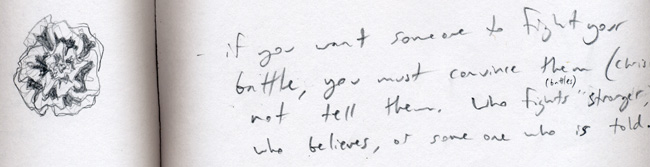 - if you want someone to fight your
battle, you must convince them (chris
(battles)
not tell them. Who fights "stronger,
who believes, or some one who is told.